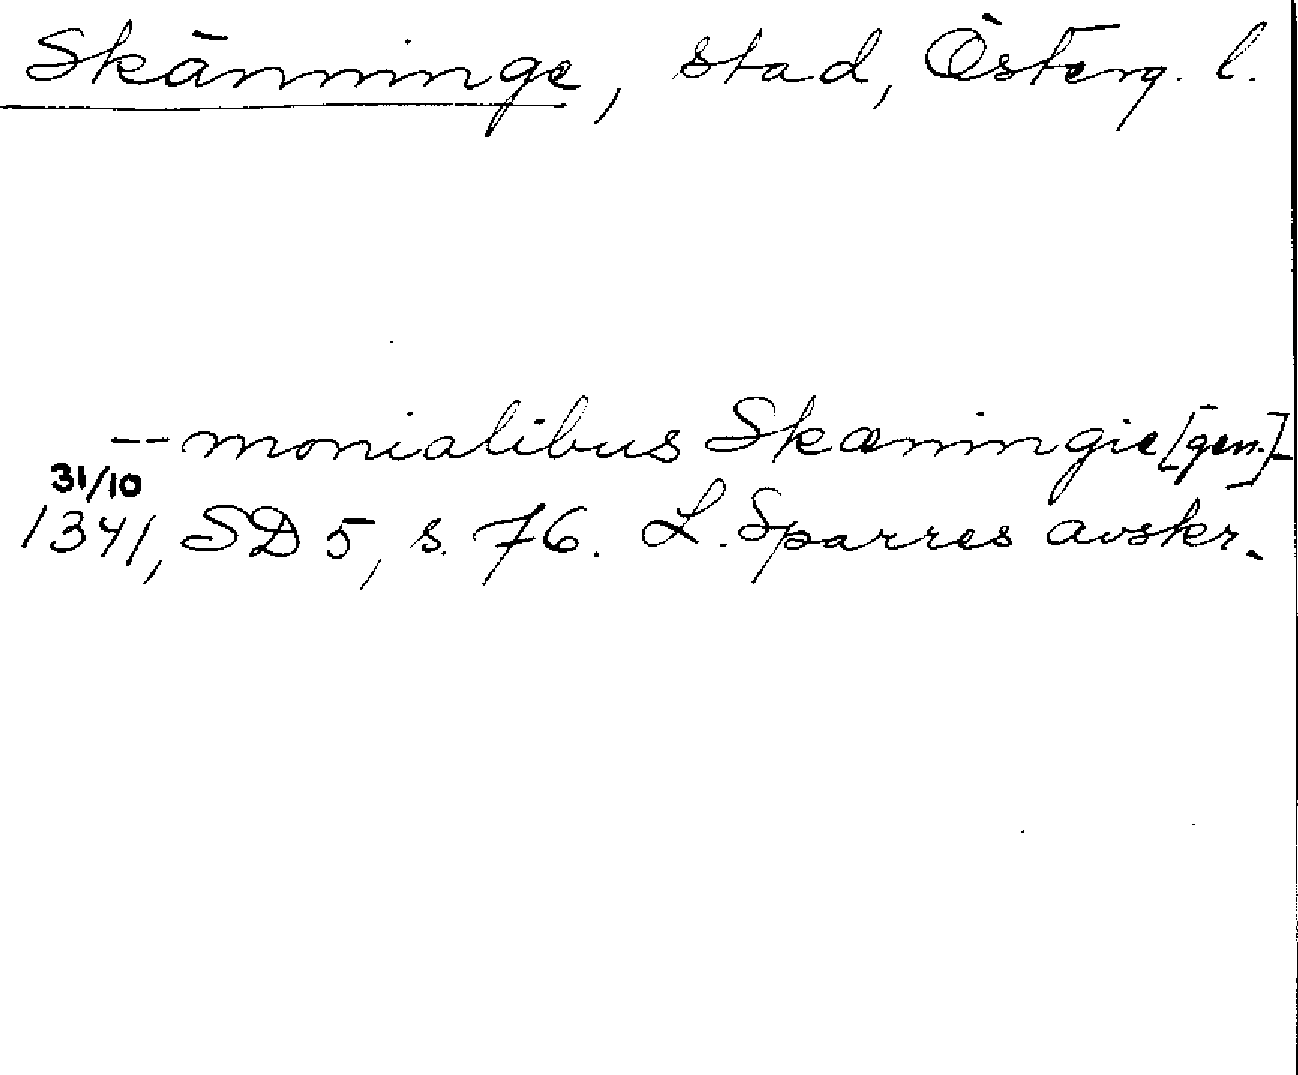 Skänninge, stad, Österg. l.
-- monialibus Skæningie [gen.]-
31/10
1341, SD 5, s. 76. L. Sparres avskr.